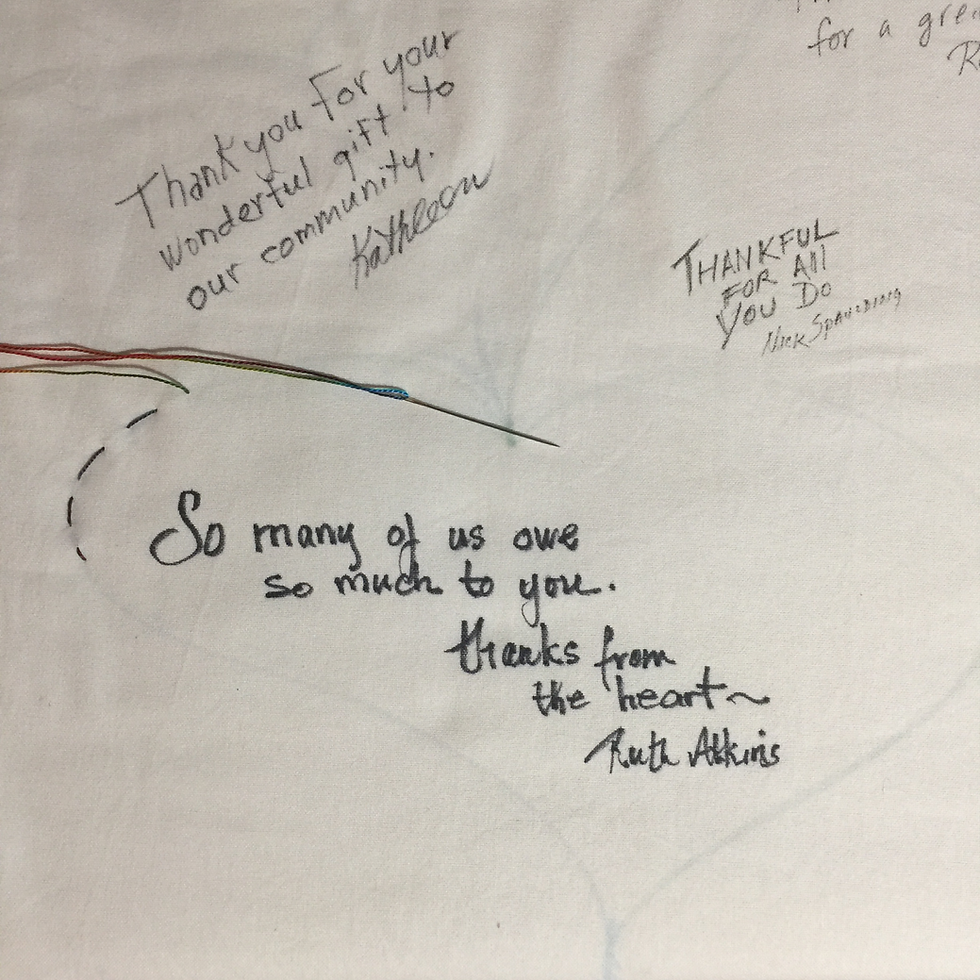 Thank you For your
wonderful gift to
our community.
Kathleen
for a
THANKFUL
FOR All
YOU DO
Nick Spaulding
So many of us owe
so much to you.
thanks from
the heart~
Ruth Atkins